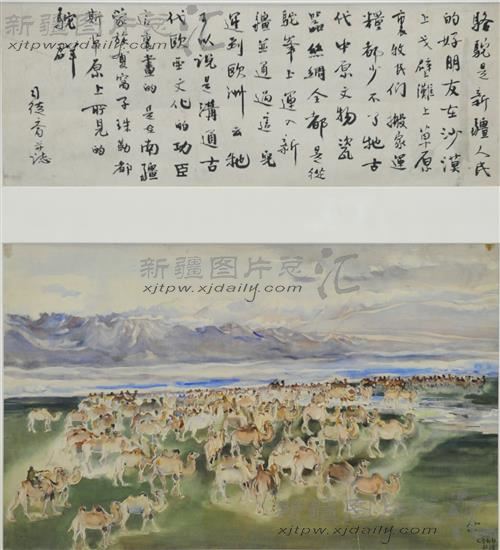 駱駝是新疆人民
的好朋友在沙漠
上戈壁灘上草原
裏牧民們搬家運
糧都少不了牠古
代中原文物瓷
器絲綢全都是從
駝峯上運入新
疆並通過這兒
運到歐洲去牠
可以說是溝通古
代歐亞文化的功臣
這裏畫的是在南疆
蒙族夏窩子珠勒都
斯草原上所見的
駝群
司徒喬並誌
新疆图片总汇
xjtpw.xjdaily.com
新疆图片总汇
xjtpw.xjdaily.com